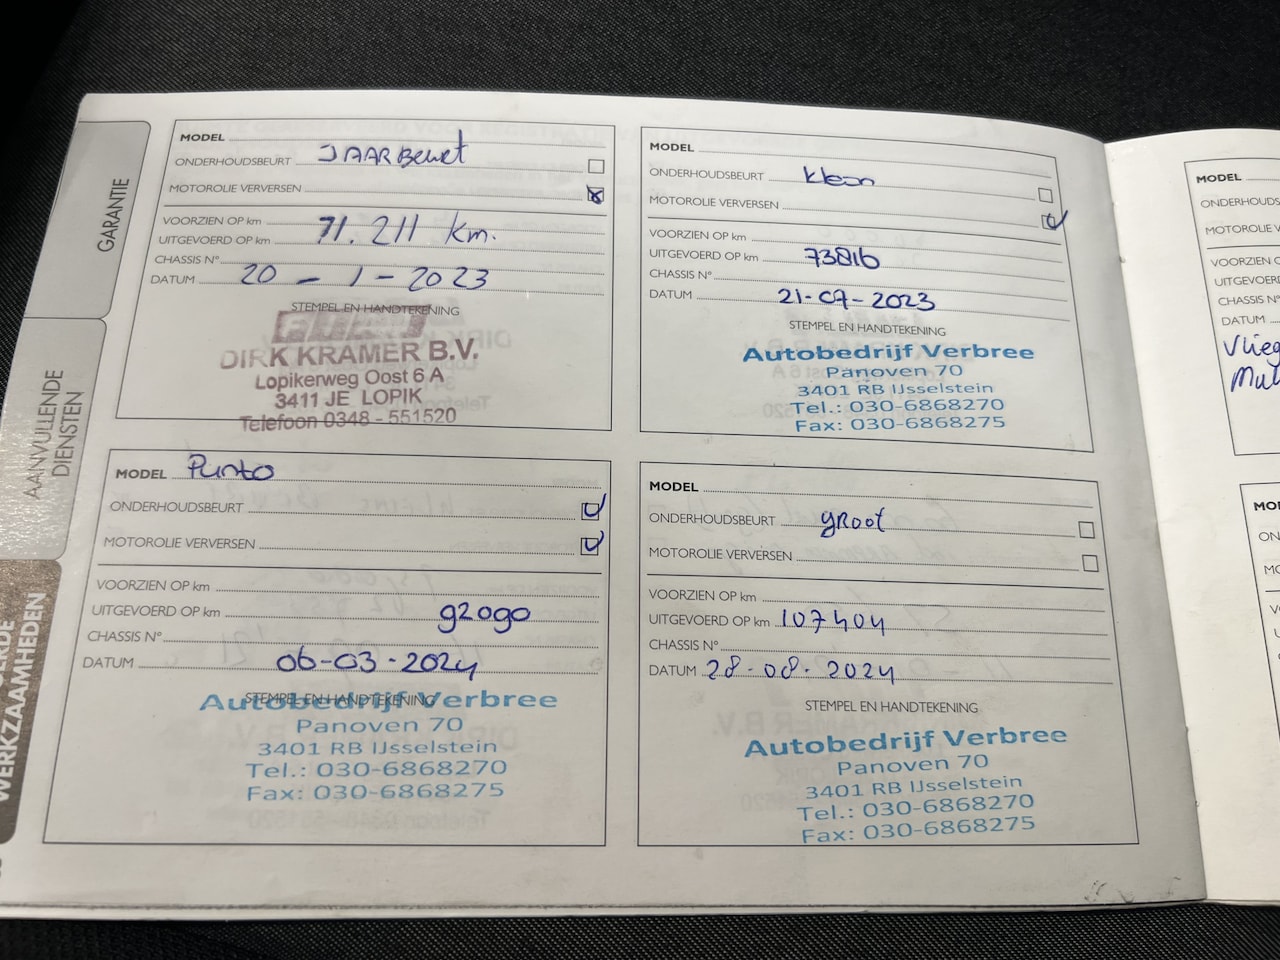 GARANTIE
AANVULLENDE
DIENSTEN
WERKZAAMHEDEN
MODEL
ONDERHOUDSBEURT JAARBeurt
MOTOROLIE VERVERSEN
VOORZIEN OP km
UITGEVOERD OP km 71.211 km.
CHASSIS N°
DATUM 20 - 1 - 2023
STEMPEL EN HANDTEKENING
DIRK KRAMER B.V.
Lopikerweg Oost 6 A
3411 JE LOPIK
Telefoon 0348 - 551520
MODEL
ONDERHOUDSBEURT klein
MOTOROLIE VERVERSEN
VOORZIEN OP km
UITGEVOERD OP km 73816
CHASSIS N°
DATUM 21-07-2023
STEMPEL EN HANDTEKENING
Autobedrijf Verbree
Panoven 70
3401 RB IJsselstein
Tel.: 030-6868270
Fax: 030-6868275
MODEL Punto
ONDERHOUDSBEURT
MOTOROLIE VERVERSEN
VOORZIEN OP km
UITGEVOERD OP km 92090
CHASSIS N°
DATUM 06-03-2024
STEMPEL EN HANDTEKENING
Autobedrijf Verbree
Panoven 70
3401 RB IJsselstein
Tel.: 030-6868270
Fax: 030-6868275
MODEL
ONDERHOUDSBEURT gRoot
MOTOROLIE VERVERSEN
VOORZIEN OP km
UITGEVOERD OP km 107404
CHASSIS N°
DATUM 28-08-2024
STEMPEL EN HANDTEKENING
Autobedrijf Verbree
Panoven 70
3401 RB IJsselstein
Tel.: 030-6868270
Fax: 030-6868275
MODEL
ONDERHOUDS
MOTOROLIE V
VOORZIEN O
UITGEVOERD
CHASSIS N°
DATUM
Vlieg
Mul
MO
ON
MO